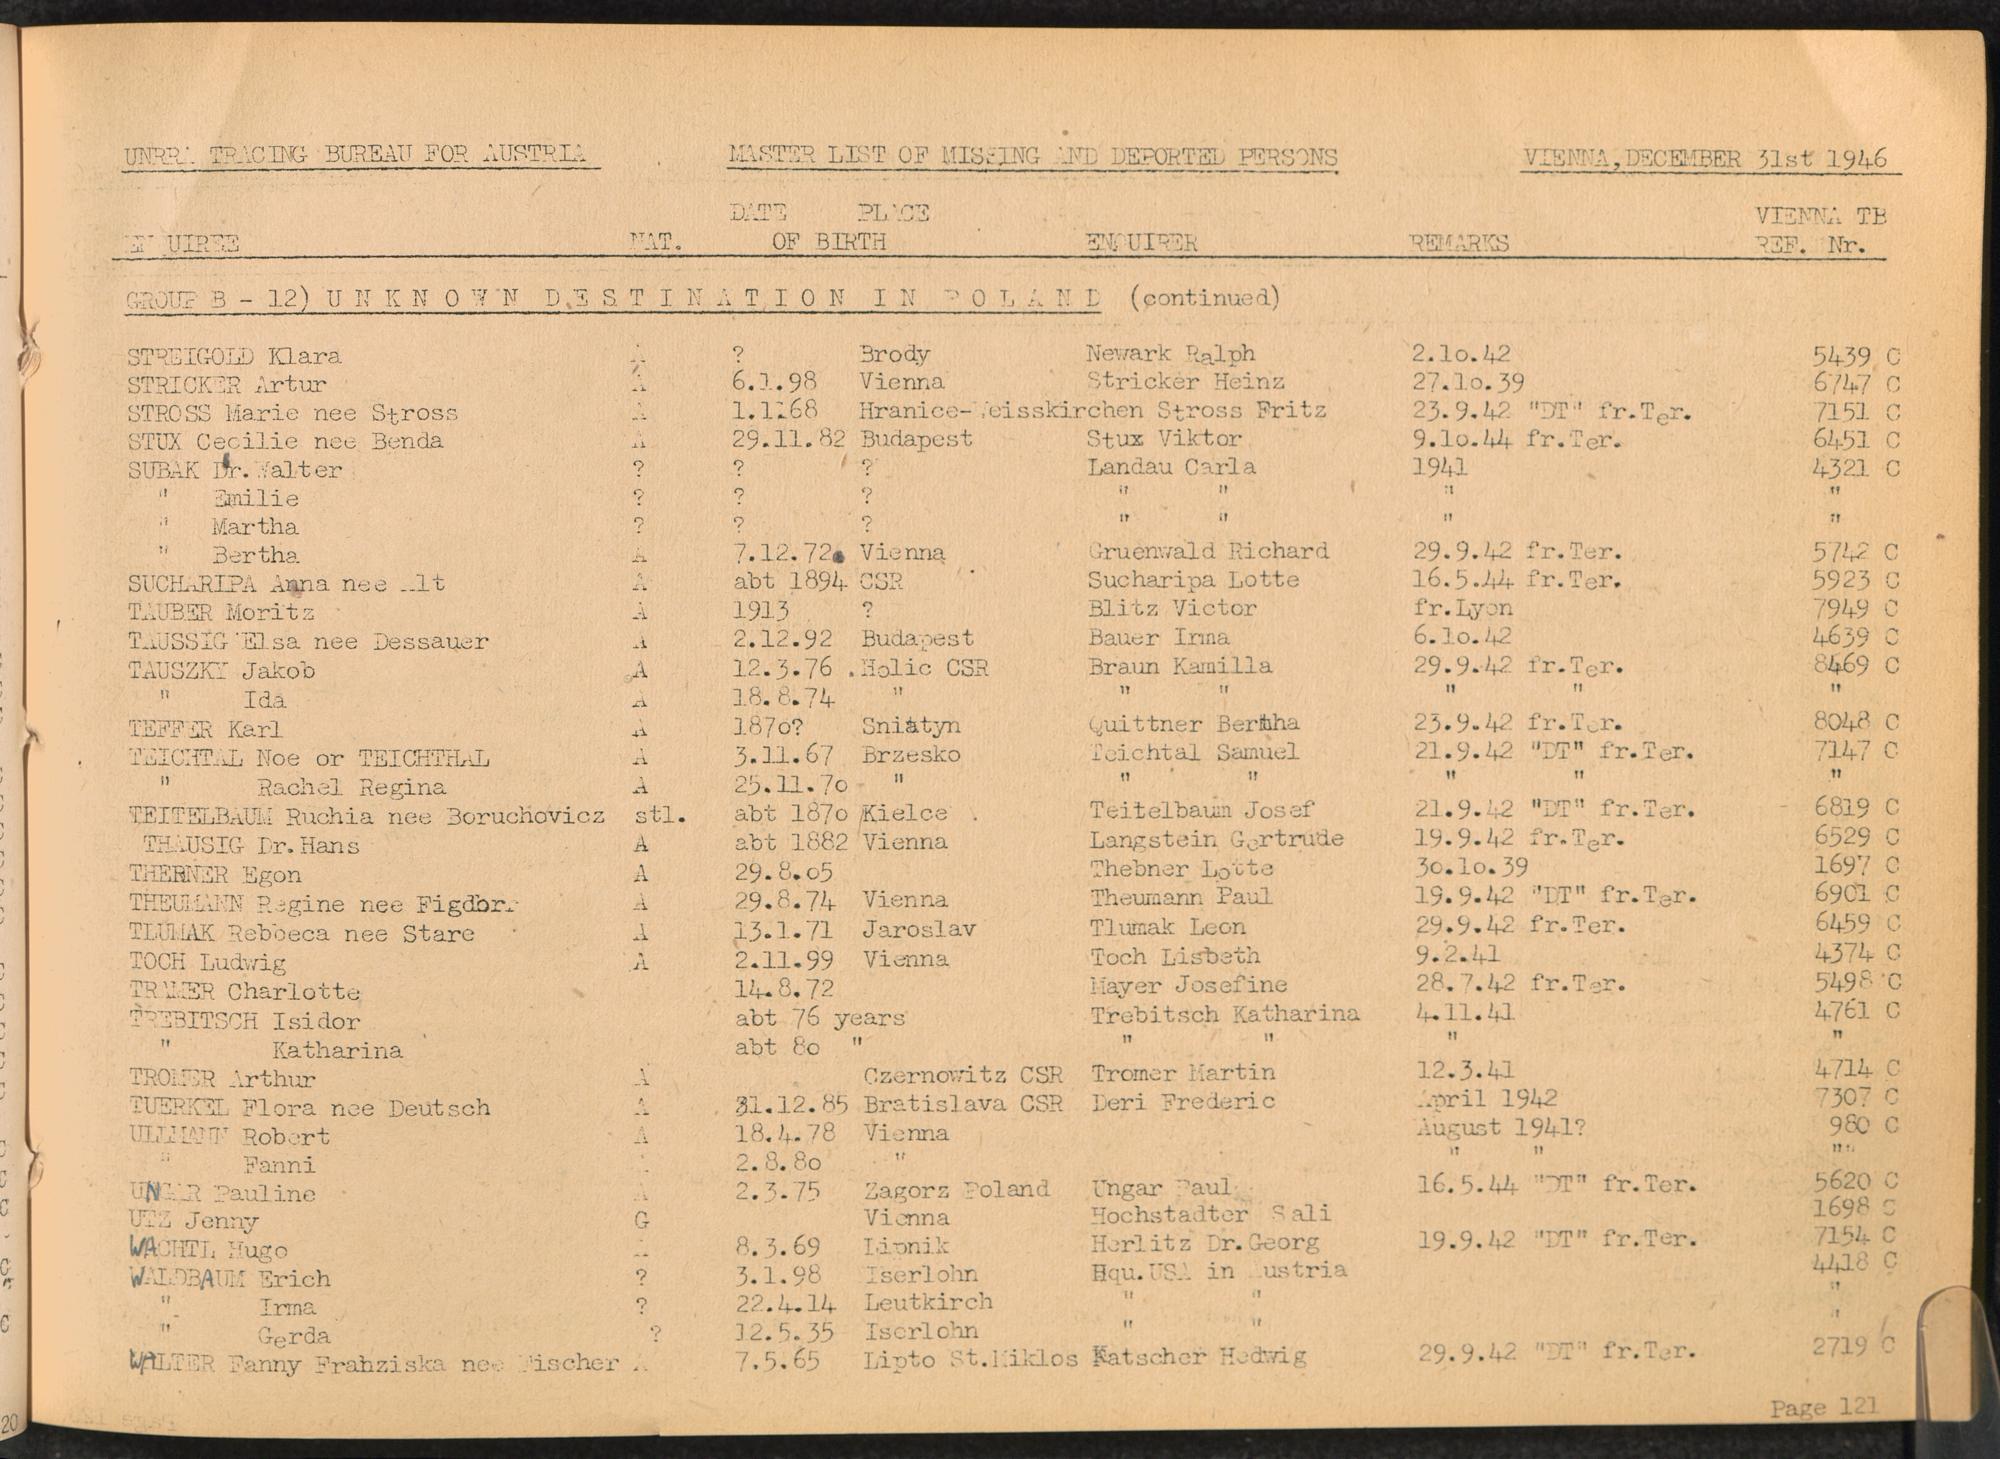 UNRRA TRACING BUREAU FOR AUSTRIA MASTER LIST OF MISSING AND DEPORTED PERSONS VIENNA, DECEMBER 31st 1946
DATE PLACE VIENNA TB
ENQUIREE NAT. OF BIRTH ENQUIRER REMARKS REF. Nr.
GROUP B - 12) UNKNOWN DESTINATION IN POLAND (continued)
STREIGOLD Klara A ? Brody Newark Ralph 2.1o.42 5439 C
STRICKER Artur A 6.1.98 Vienna Stricker Heinz 27.1o.39 6747 C
STROSS Marie nee Stross A 1.1168 Hranice-Weisskirchen Stross Fritz 23.9.42 "DT" fr.Ter. 7151 C
STUX Cecilie nee Benda A 29.11.82 Budapest Stux Viktor 9.1o.44 fr.Ter. 6451 C
SUBAK Dr.Walter ? ? ? Landau Carla 1941 4321 C
" Emilie ? ? ? " " " "
" Martha ? ? ? " " " "
" Bertha A 7.12.72. Vienna Gruenwald Richard 29.9.42 fr.Ter. 5742 C
SUCHARIPA Anna nee Alt A abt 1894 CSR Sucharipa Lotte 16.5.44 fr.Ter. 5923 C
TAUBER Moritz A 1913 ? Blitz Victor fr.Lyon 7949 C
TAUSSIG Elsa nee Dessauer A 2.12.92 Budapest Bauer Irma 6.1o.42 4639 C
TAUSZKY Jakob A 12.3.76 Holic CSR Braun Kamilla 29.9.42 fr.Ter. 8469 C
" Ida A 18.8.74 " " " " " "
TEFFER Karl A 187o? Sniatyn Quittner Bertha 23.9.42 fr.Ter. 8048 C
TEICHTAL Noe or TEICHTHAL A 3.11.67 Brzesko Teichtal Samuel 21.9.42 "DT" fr.Ter. 7147 C
" Rachel Regina A 25.11.7o " " " " " "
TEITELBAUM Ruchia nee Boruchovicz stl. abt 187o Kielce Teitelbaum Josef 21.9.42 "DT" fr.Ter. 6819 C
THAUSIG Dr.Hans A abt 1882 Vienna Langstein Gertrude 19.9.42 fr.Ter. 6529 C
THEBNER Egon A 29.8.o5 Thebner Lotte 3o.1o.39 1697 C
THEUMANN Regine nee A 29.8.74 Vienna Theumann Paul 19.9.42 "DT" fr.Ter. 6901 C
TLUMAK Rebbeca nee Stare A 13.1.71 Jaroslav Tlumak Leon 29.9.42 fr.Ter. 6459 C
TOCH Ludwig A 2.11.99 Vienna Toch Lisbeth 9.2.41 4374 C
TRAMER Charlotte 14.8.72 Mayer Josefine 28.7.42 fr.Ter. 5498 C
TREBITSCH Isidor abt 76 years Trebitsch Katharina 4.11.41 4761 C
" Katharina abt 8o " " " " "
TROMER Arthur A Czernowitz CSR Tromer Martin 12.3.41 4714 C
TUERKEL Flora nee Deutsch A 31.12.85 Bratislava CSR Deri Frederic April 1942 7307 C
ULLMANN Robert A 18.4.78 Vienna August 1941? 980 C
" Fanni 2.8.8o " " " ""
UNGAR Pauline A 2.3.75 Zagorz Poland Ungar Paul 16.5.44 "DT" fr.Ter. 5620 C
UTZ Jenny G Vienna Hochstadter Sali 1698 C
WACHTL Hugo A 8.3.69 Lipnik Herlitz Dr.Georg 19.9.42 "DT" fr.Ter. 7154 C
WALDBAUM Erich ? 3.1.98 Iserlohn Hqu.USA in Austria 4418 C
" Irma ? 22.4.14 Leutkirch " " "
" Gerda ? 12.5.35 Iserlohn " " "
WALTER Fanny Franziska nee Fischer A 7.5.65 Lipto St.Miklos Katscher Hedwig 29.9.42 "DT" fr.Ter. 2719 C
Page 121
20